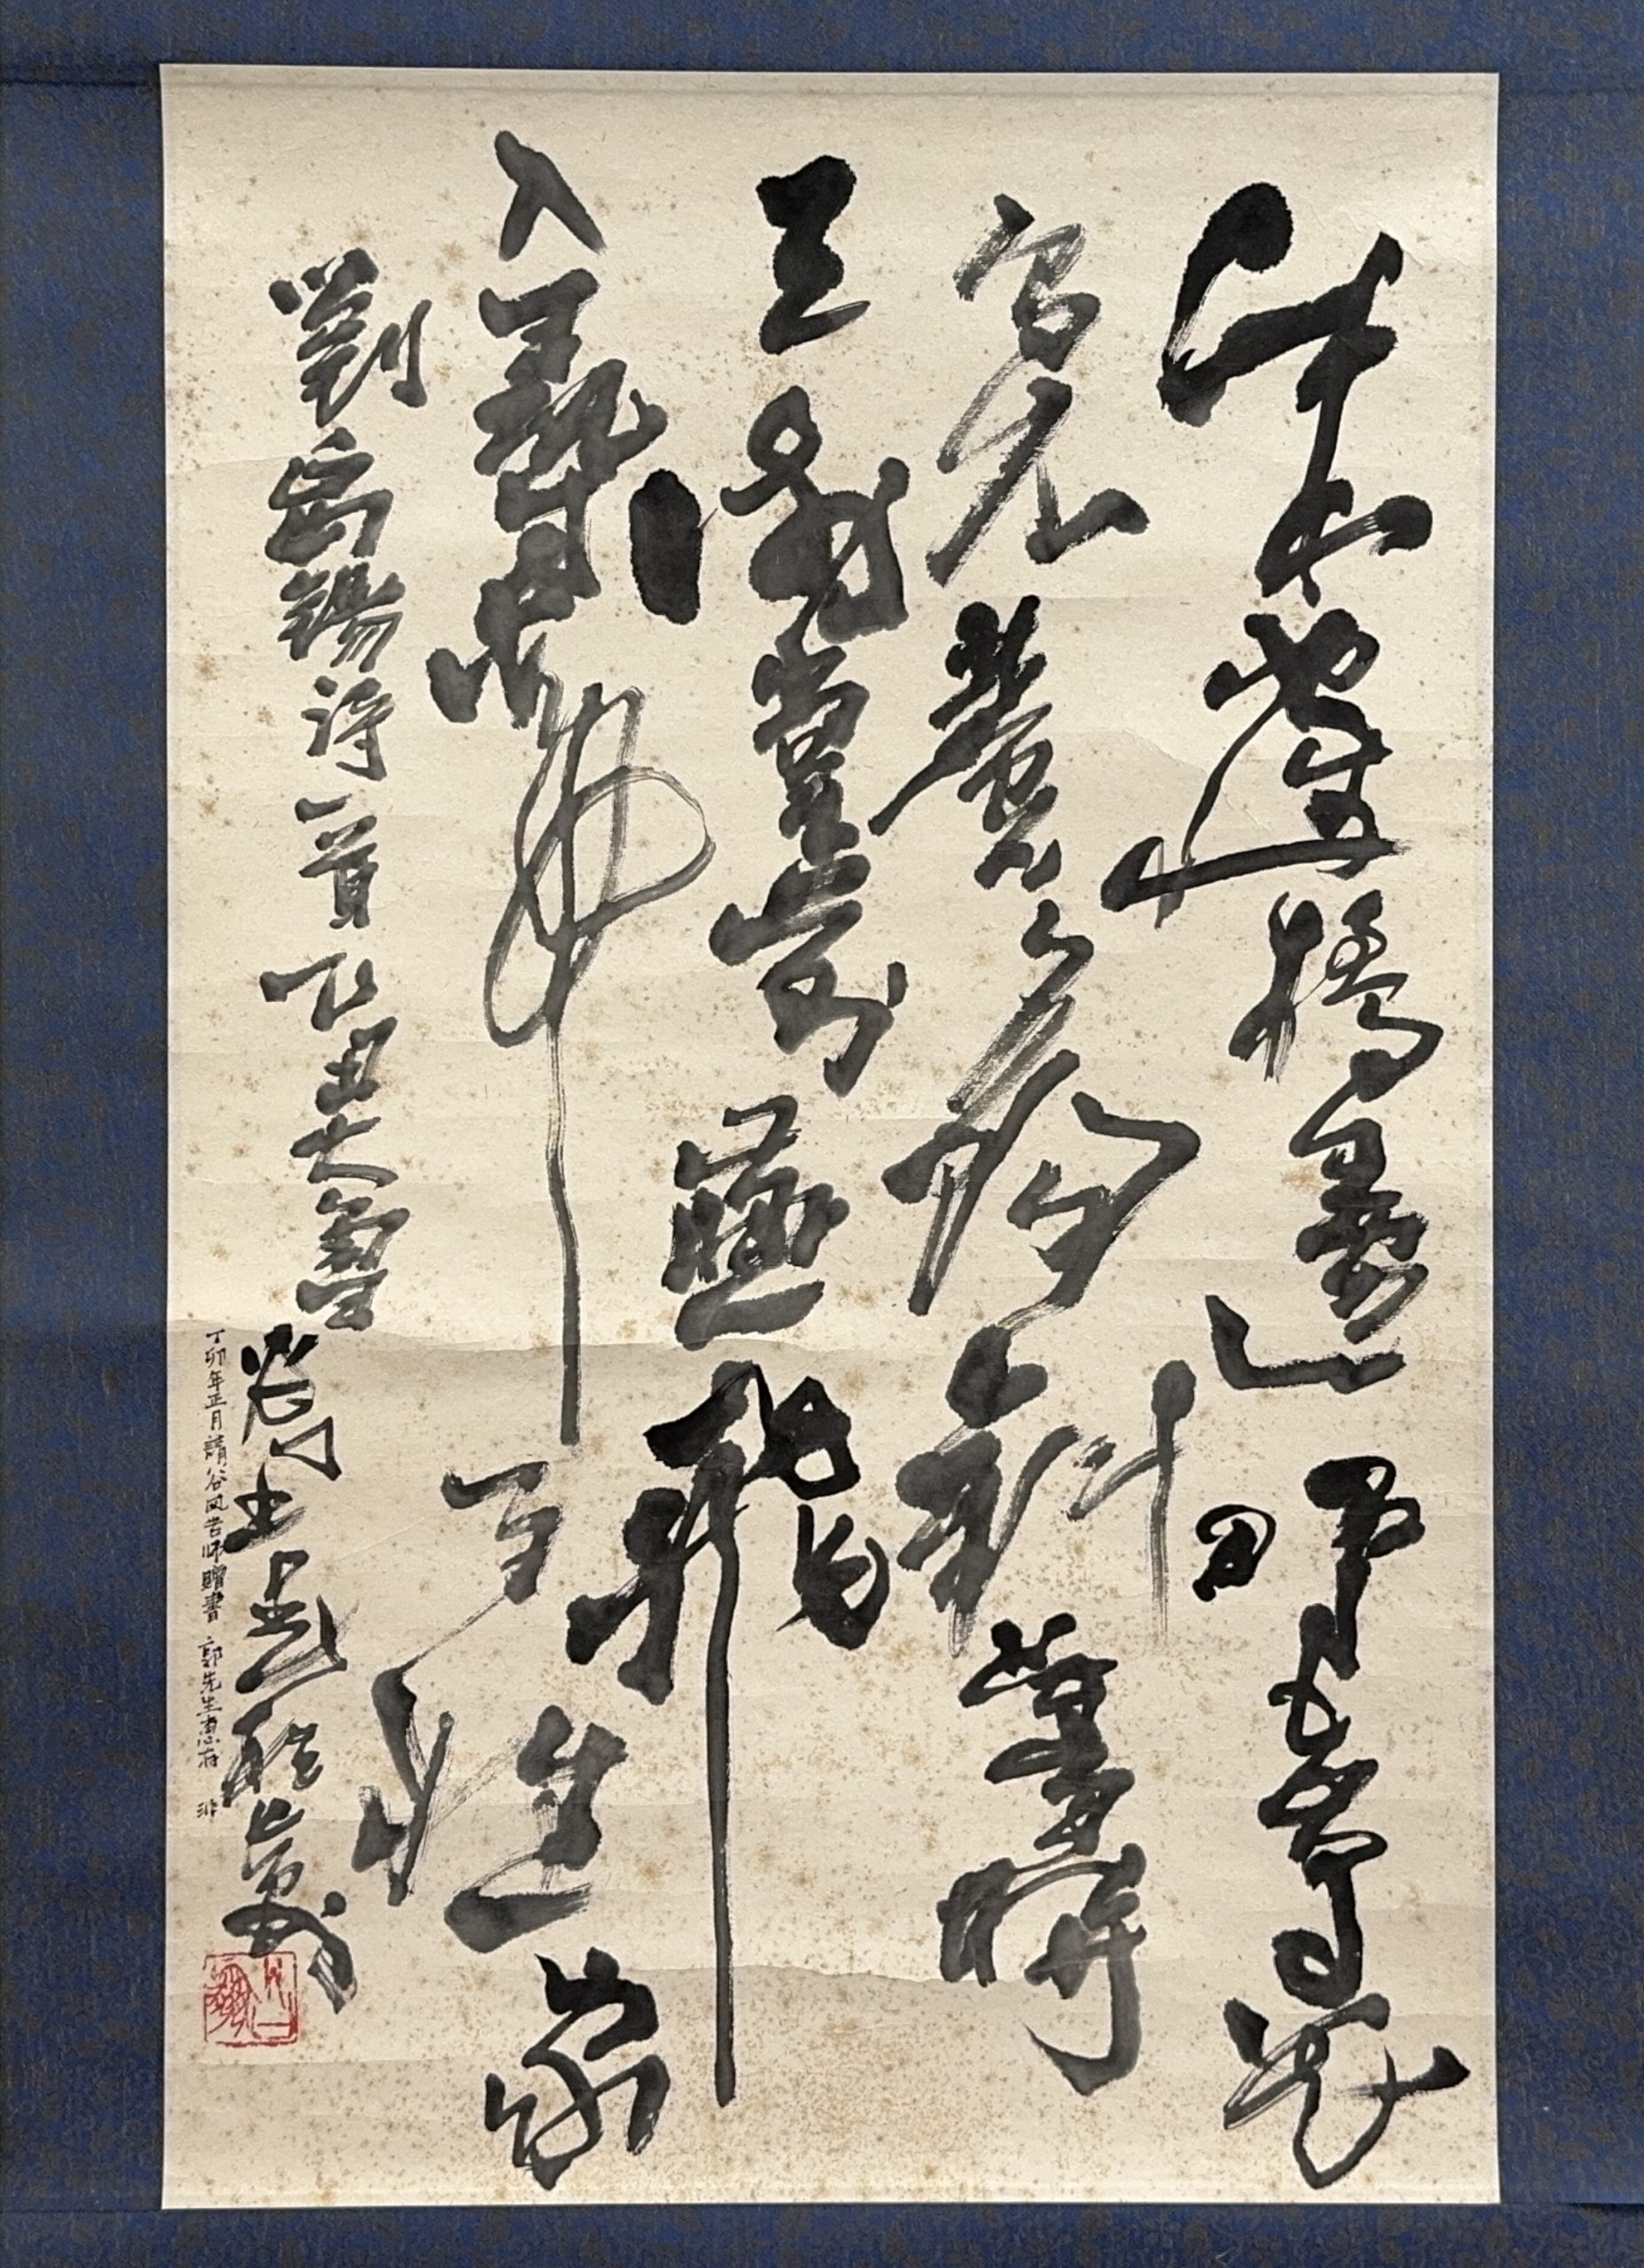 朱雀橋邊野草花
烏衣巷口夕陽斜舊時
王謝堂前燕飛
入尋常百姓家
劉禹錫詩一首乙丑大雪
丁卯年正月請谷风老师贈書 郭先生惠存